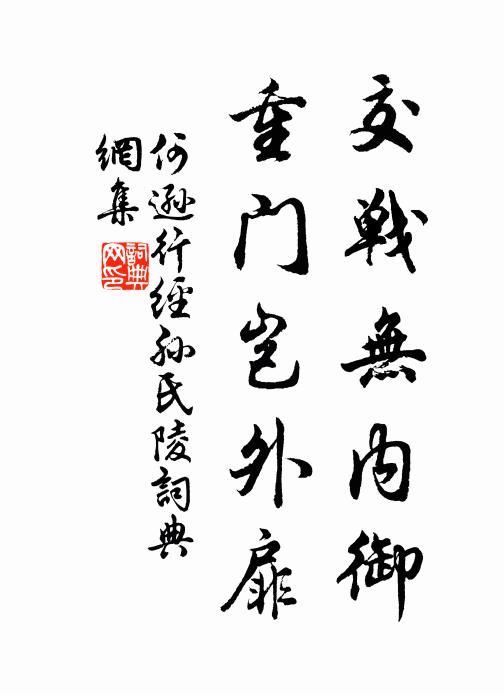 交戦無内御
重門豈外扉
何遜行經孫氏陵詞典
網集
詞典
网印